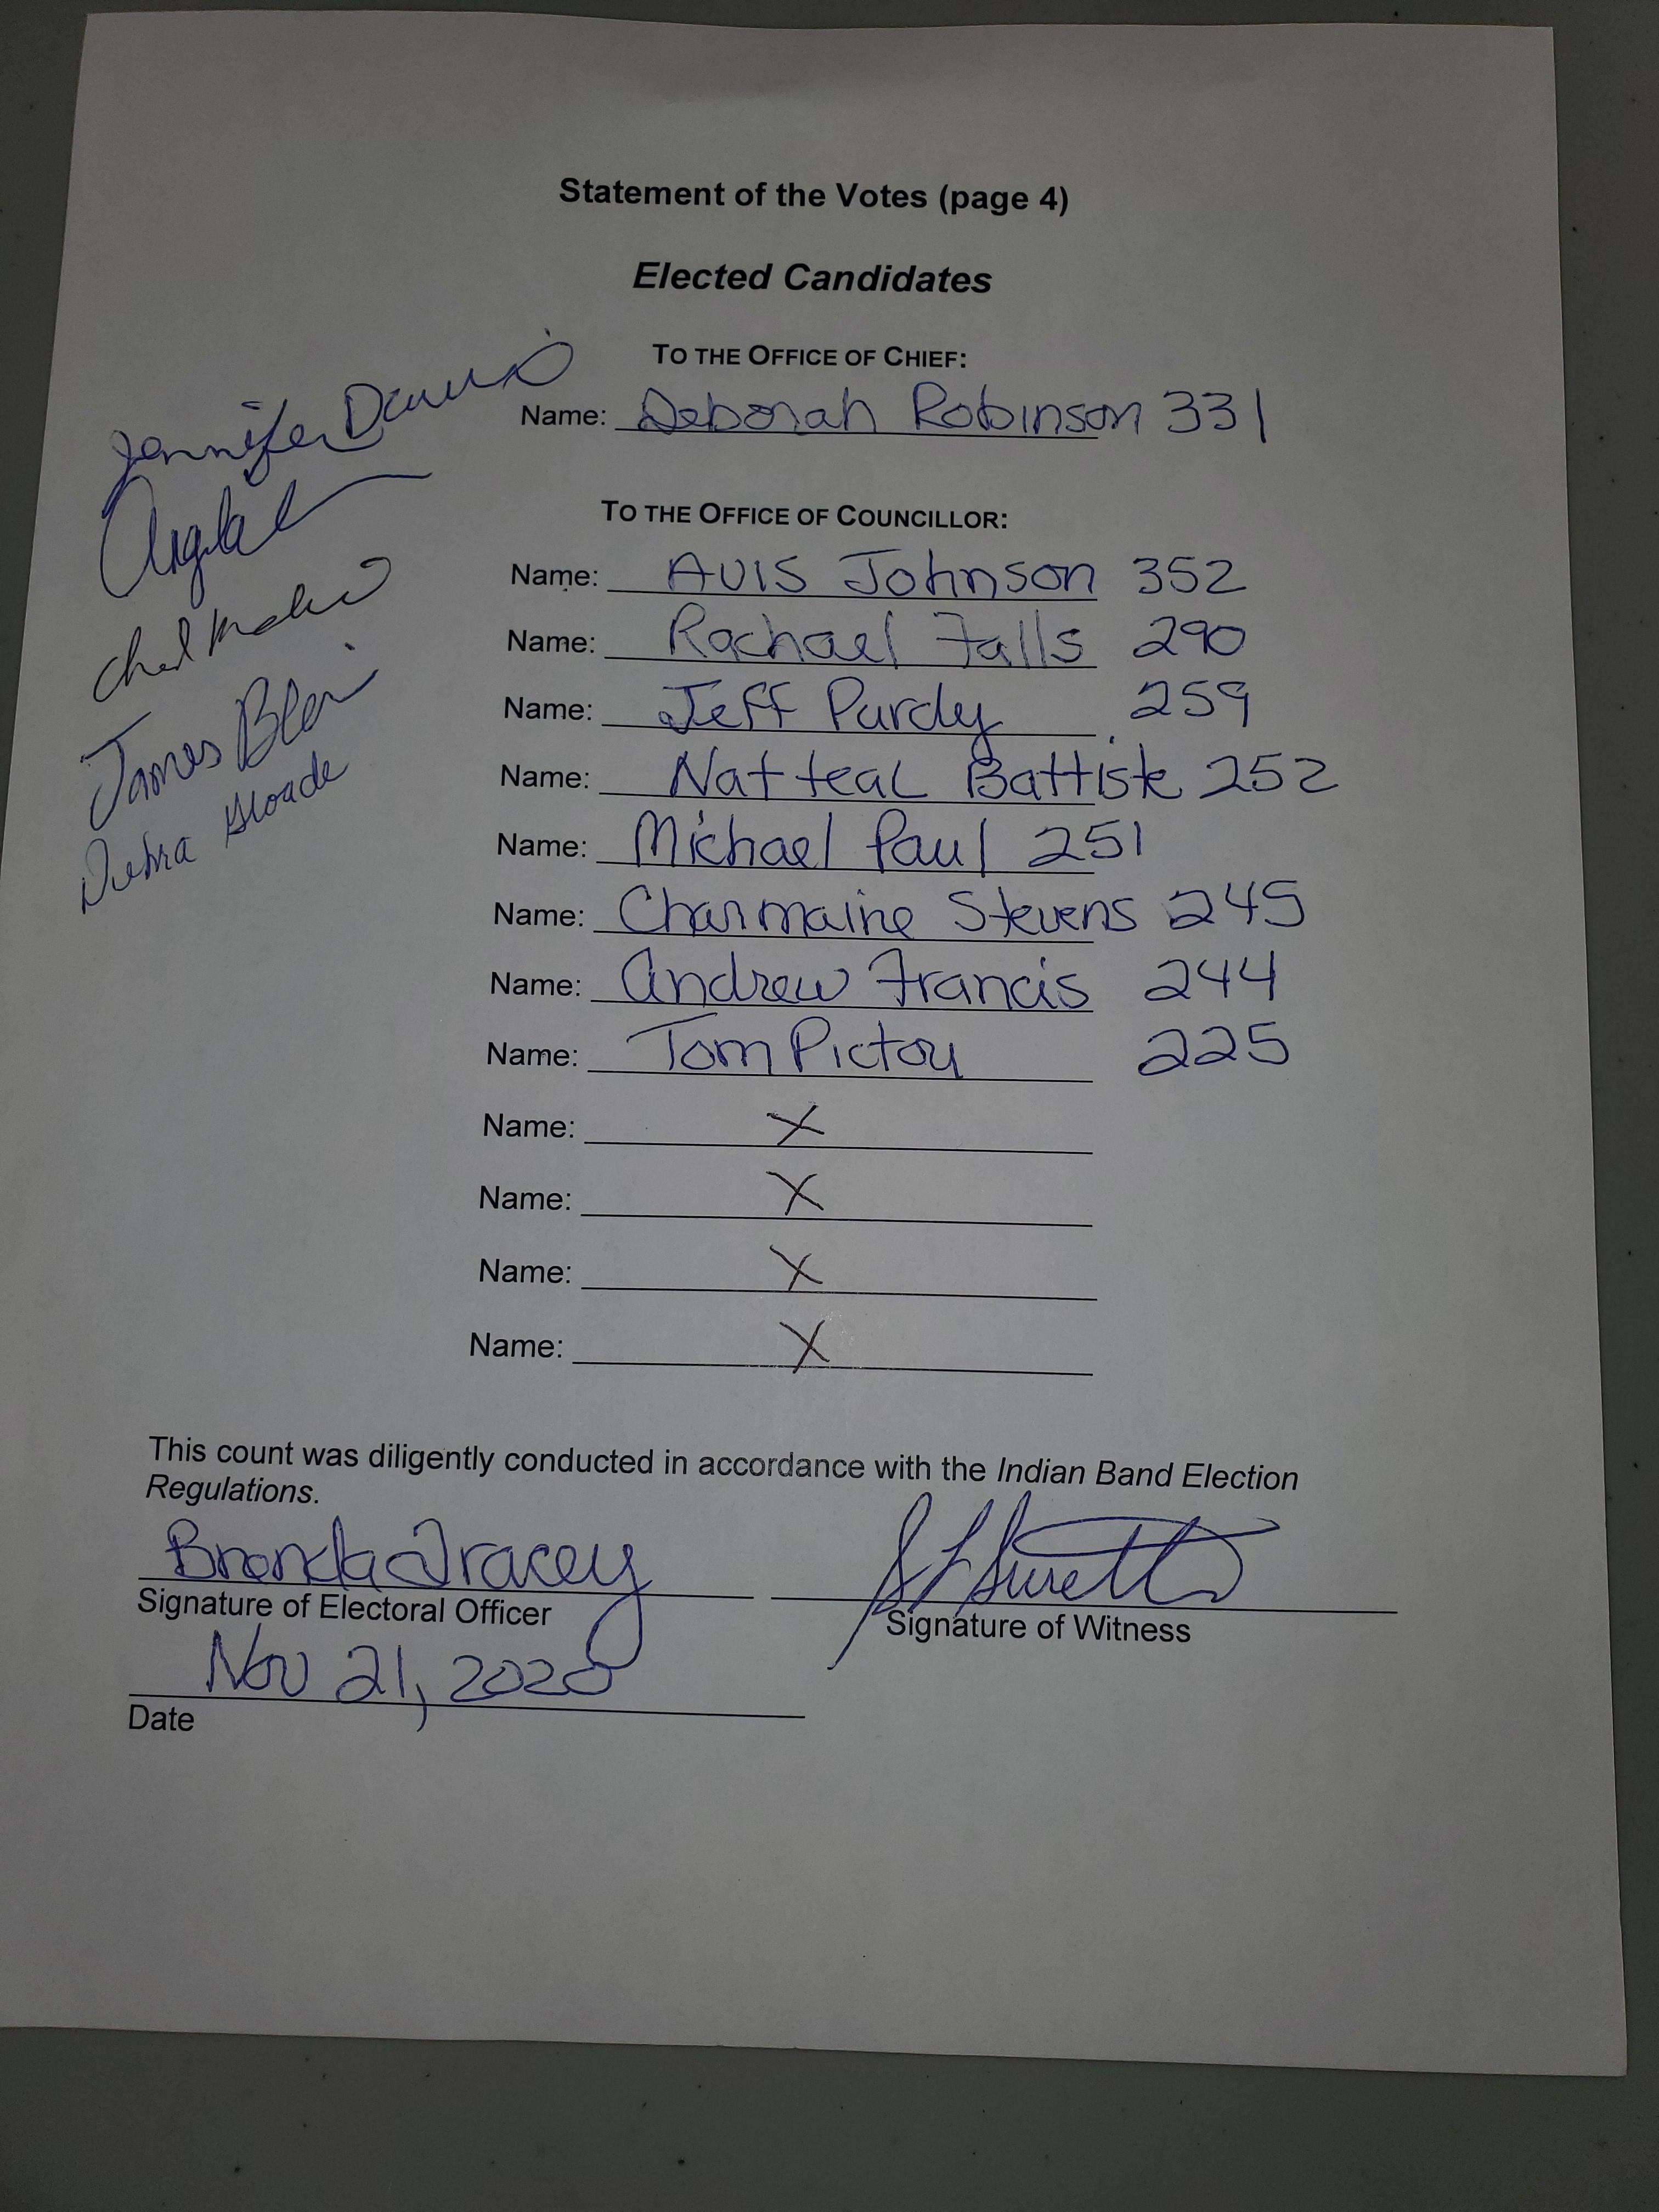 Statement of the Votes (page 4)
Elected Candidates
TO THE OFFICE OF CHIEF:
Name: Deborah Robinson 331
TO THE OFFICE OF COUNCILLOR:
Name: Avis Johnson 352
Name: Rachael Falls 290
Name: Jeff Purdy 259
Name: Natteal Battiste 252
Name: Michael Paul 251
Name: Charmaine Stevens 245
Name: Andrew Francis 244
Name: Tom Pictou 225
Name: X
Name: X
Name: X
Name: X
Jennifer
James
Debra Gloade
This count was diligently conducted in accordance with the Indian Band Election
Regulations.
Brenda Tracey
Signature of Electoral Officer
Signature of Witness
Nov 21, 2020
Date